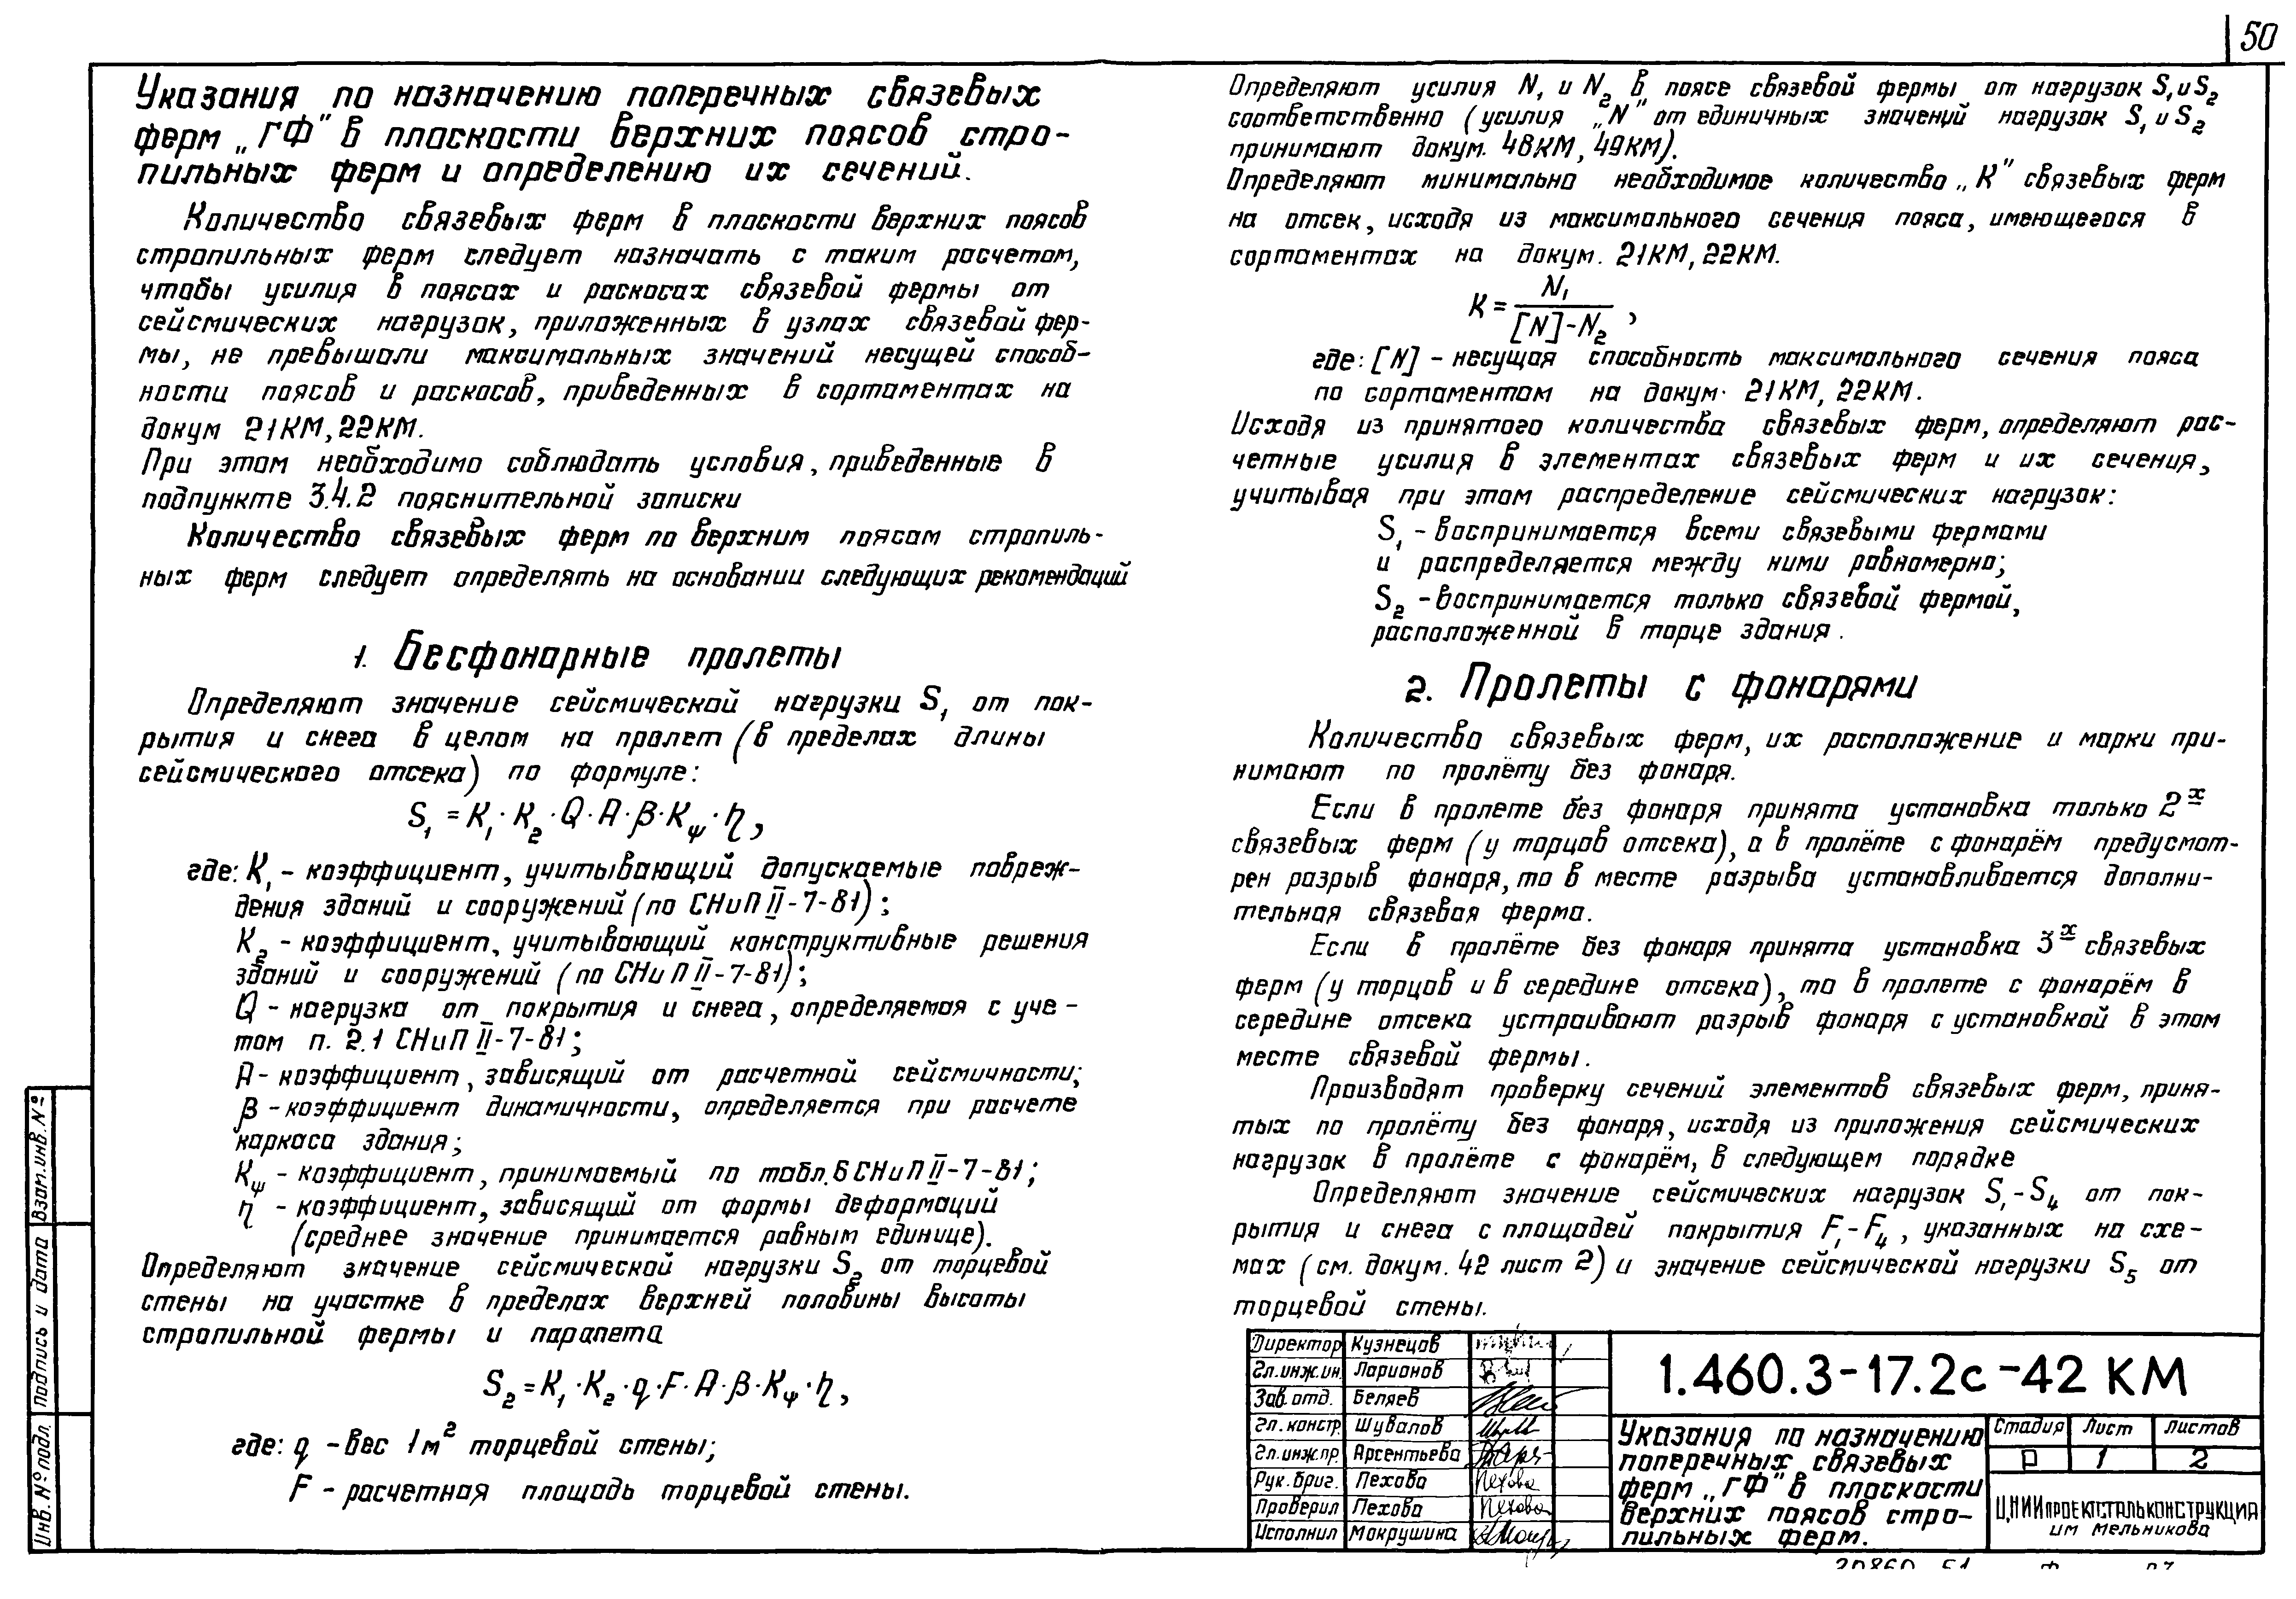 50
Указания по назначению поперечных связевых
ферм „ГФ" в плоскости верхних поясов стро-
пильных ферм и определению их сечений.
Количество связевых ферм в плоскости верхних поясов
стропильных ферм следует назначать с таким расчетом,
чтобы усилия в поясах и раскосах связевой фермы от
сейсмических нагрузок, приложенных в узлах связевой фер-
мы, не превышали максимальных значений несущей способ-
ности поясов и раскосов, приведенных в сортаментах на
докум 21КМ, 22КМ.
При этом необходимо соблюдать условия, приведенные в
подпункте 3.4.2 пояснительной записки
Количество связевых ферм по верхним поясам стропиль-
ных ферм следует определять на основании следующих рекомендаций
1. Бесфонарные пролеты
Определяют значение сейсмической нагрузки S₁ от пок-
рытия и снега в целом на пролет (в пределах длины
сейсмического отсека) по формуле:
S₁ = K₁ · K₂ · Q · A · β · Kψ · η,
где: K₁ - коэффициент, учитывающий допускаемые повреж-
дения зданий и сооружений (по СНиП II-7-81);
K₂ - коэффициент, учитывающий конструктивные решения
зданий и сооружений (по СНиП II-7-81);
Q - нагрузка от покрытия и снега, определяемая с уче-
том п. 2.1 СНиП II-7-81;
A - коэффициент, зависящий от расчетной сейсмичности;
β - коэффициент динамичности, определяется при расчете
каркаса здания;
Kψ - коэффициент, принимаемый по табл. 6 СНиП II-7-81;
η - коэффициент, зависящий от формы деформаций
(среднее значение принимается равным единице).
Определяют значение сейсмической нагрузки S₂ от торцевой
стены на участке в пределах верхней половины высоты
стропильной фермы и парапета
S₂ = K₁ · K₂ · q · F · A · β · Kψ · η,
где: q - вес 1м² торцевой стены;
F - расчетная площадь торцевой стены.
Определяют усилия N₁ и N₂ в поясе связевой фермы от нагрузок S₁ и S₂
соответственно (усилия „N" от единичных значений нагрузок S₁ и S₂
принимают докум. 48КМ, 49КМ).
Определяют минимально необходимое количество „К" связевых ферм
на отсек, исходя из максимального сечения пояса, имеющегося в
сортаментах на докум. 21КМ, 22КМ.
K = N₁ / [N] - N₂ ,
где: [N] - несущая способность максимального сечения пояса
по сортаментом на докум. 21КМ, 22КМ.
Исходя из принятого количества связевых ферм, определяют рас-
четные усилия в элементах связевых ферм и их сечения,
учитывая при этом распределение сейсмических нагрузок:
S₁ - воспринимается всеми связевыми фермами
и распределяется между ними равномерно;
S₂ - воспринимается только связевой фермой,
расположенной в торце здания.
2. Пролеты с фонарями
Количество связевых ферм, их расположение и марки при-
нимают по пролёту без фонаря.
Если в пролете без фонаря принята установка только 2ˣ
связевых ферм (у торцов отсека), а в пролёте с фонарём предусмот-
рен разрыв фонаря, то в месте разрыва устанавливается дополни-
тельная связевая ферма.
Если в пролёте без фонаря принята установка 3ˣ связевых
ферм (у торцов и в середине отсека), то в пролете с фонарём в
середине отсека устраивают разрыв фонаря с установкой в этом
месте связевой фермы.
Производят проверку сечений элементов связевых ферм, приня-
тых по пролёту без фонаря, исходя из приложения сейсмических
нагрузок в пролёте с фонарём, в следующем порядке
Определяют значение сейсмических нагрузок S₁-S₄ от пок-
рытия и снега с площадей покрытия F₁-F₄, указанных на схе-
мах (см. докум. 42 лист 2) и значение сейсмической нагрузки S₅ от
торцевой стены.
Директор Кузнецов
Гл.инж.ин. Ларионов
Зав. отд. Беляев
Гл. констр. Шувалов
Гл.инж.пр. Арсентьева
Рук. бриг. Пехова Пехова
Проверил Пехова Пехова
Исполнил Мокрушина
1.460.3-17.2с-42 КМ
Указания по назначению
поперечных связевых
ферм „ГФ" в плоскости
верхних поясов стро-
пильных ферм.
Стадия Лист Листов
Р 1 2
ЦНИИПРОЕКТСТАЛЬКОНСТРУКЦИЯ
им Мельникова
Инв. № подл. Подпись и дата Взам. инв. №